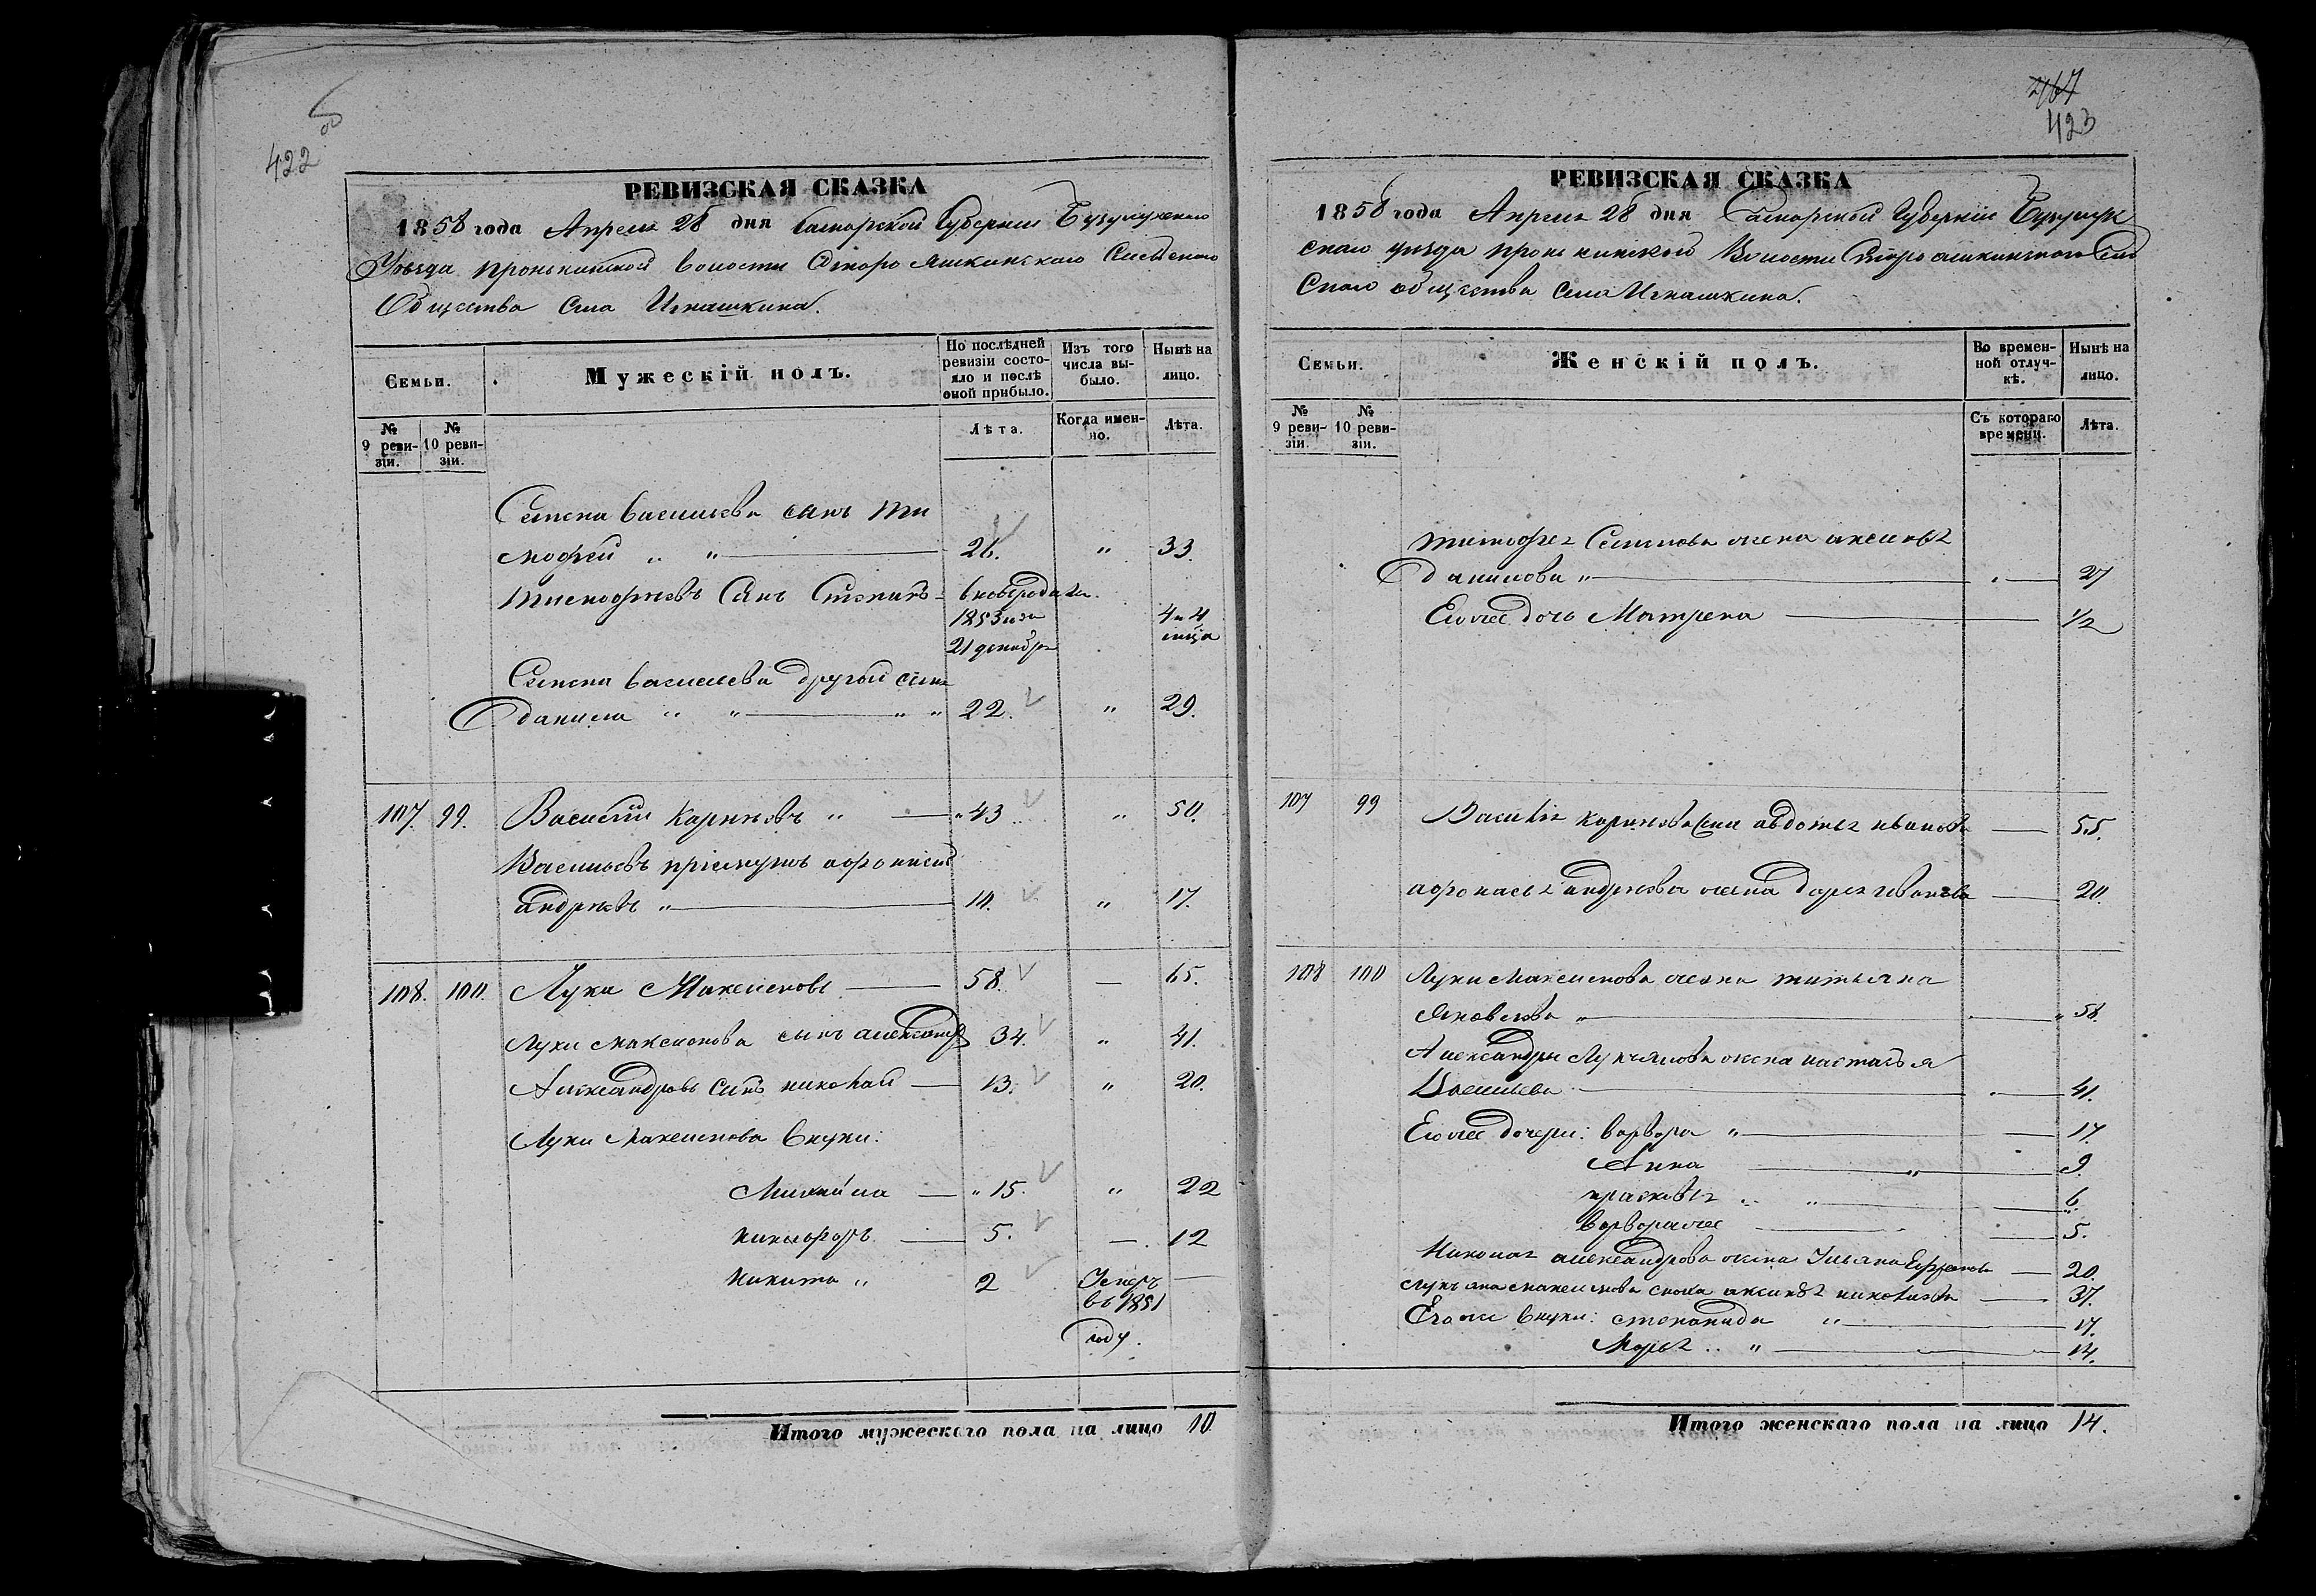 422
об
РЕВИЗСКАЯ СКАЗКА
1858 года Апреля 28 дня Самарской Губернии Бузулукскаго
Уѣзда пронькинской волости Старо яшкинскаго Сельскаго
Общества Села Игнашкина.
Семьи.
Мужескій полъ.
По послѣдней ревизіи состояло и послѣ оной прибыло.
Изъ того числа выбыло.
Нынѣ на лицо.
№ 9 ревизіи.
№ 10 ревизіи.
Лѣта.
Когда именно.
Лѣта.
Семена васильева сынъ Ти
мофей " " 26. " 33.
Тимофеевъ Сынъ Степанъ
1853 года 4 и 4
21 декабря мѣца
Семена васильева другой сынъ
данила " " 22. " 29.
107. 99. Василій Карповъ " 43 " 50.
Васильевъ пріемушъ афонасій
андреевъ " 10. " 17.
108. 100. Лука Максимовъ 58. — 65.
Луки максимова сынъ александръ 34. " 41.
Александровъ Сынъ николай 13. " 20.
Луки Максимова внуки:
Михайла " 15. " 22
никифоръ 5. — 12
Никита " 2 Умеръ —
въ 1851
году.
Итого мужескаго пола на лицо 10
467
423
РЕВИЗСКАЯ СКАЗКА
1858 года Апреля 28 дня Самарской Губерніи Бузулук
скаго уѣзда пронькинской Волости Старо яшкинскаго Сель
Скаго общества Села Игнашкина.
Семьи.
Женскій полъ.
Во временной отлучкѣ.
Нынѣ на лицо.
№ 9 ревизіи.
№ 10 ревизіи.
Съ котораго времени.
Лѣта.
тимофея Семенова жена аксинья
данилова " 27
Еюже дочь Матрена 1/2
107 99 Василья карпова жена авдотья иванова 55.
афонасья андреева жена дарья иванова 20.
108 100 Луки Максимова жена татьяна
Яковлева " 58.
Александры Лукъянова жена настасья
Васильева 41.
Еюже дочери: варвара " 17.
Анна " 9.
прасковья " 6.
варвара же 5.
Николая александрова жена Ульяна 20.
лукъяна максимова сноха аксинья 37.
Его же внуки: степанида " 17.
Марья " 14.
Итого женскаго пола на лицо 14.